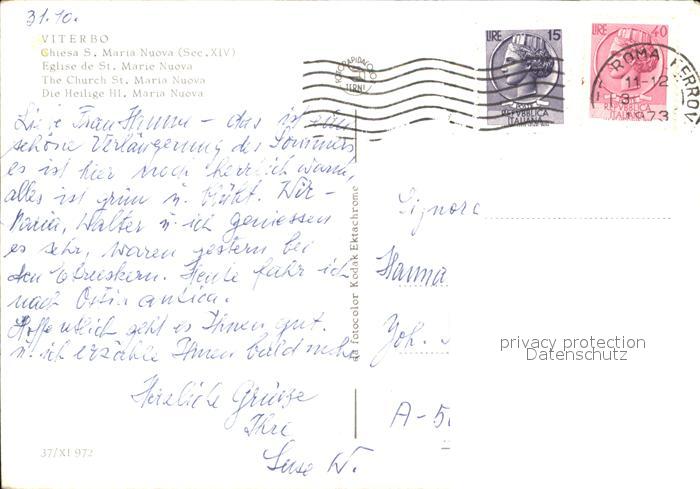 31.10.
VITERBO
Chiesa S. Maria Nuova (Sec. XIV)
Eglise de St. Marie Nuova
The Church St. Maria Nuova
Die Heilige Hl. Maria Nuova
Liebe Frau Hanna – das ist eine
schöne Verlängerung des Sommers
es ist hier noch herrlich warm,
alles ist grün u. blüht. Wir –
Maria, Walter u. ich geniessen
es sehr, waren gestern bei
den Etruskern. Heute fahr ich
nach Ostia antica.
Hoffentlich geht es Ihnen gut.
u. ich erzähle Ihnen bald mehr
Herzliche Grüsse
Ihre
W.
37/XI 972
ed fotocolor Kodak Ektachrome
LIRE 15
REPVBBLICA
ITALIANA
LIRE 40
REPVBBLICA
ITALIANA
ROMA FERROV
11-12
1973
TERNI
Signora
Hanna
Joh.
A-5
privacy protection
Datenschutz